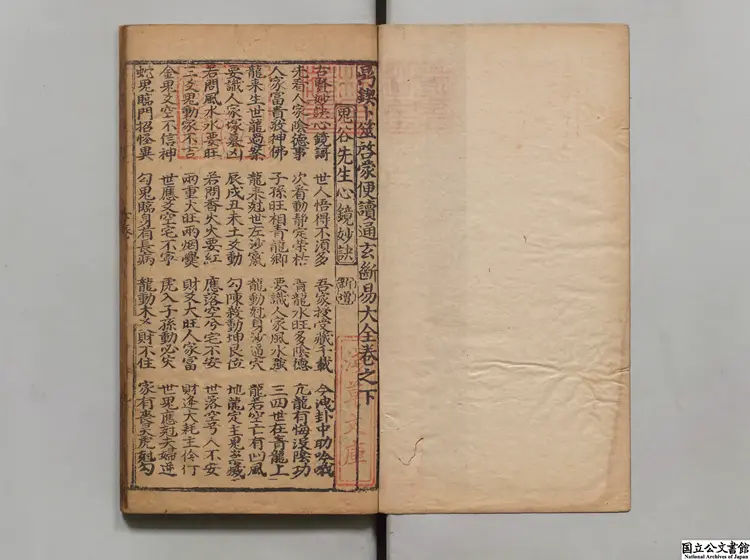 卜筮啓蒙便讀通玄斷易大全卷之下
鬼谷先生心鏡妙訣 新増
古賢妙訣心鏡訶 世人悟得不須多 吾家授受藏千載 今洩卦中助吟哦
先看人家陰德事 次看動靜定榮枯 青龍水旺多陰德 亢龍有悔沒陰功
人家富貴敬神佛 子孫旺相青龍卿 要識人家風水強 三四世在青龍上
龍來生世龍過案 龍來剋世左沙竄 龍動剋身沙逼穴 龍若空亡有凹風
要識人家塚墓凶 辰戌丑未土爻動 勾陳發動坤艮位 地龍定主鬼
若問風水水要旺 若問香火火要紅 應落空兮宅不安 世落空兮人不安
三爻鬼動家不吉 兩重火旺兩烟爨 財爻大旺人家富 財逢大耗主伶仃
金鬼爻空不信神 世應爻空宅不寧 虎入子孫動必災 世鬼應剋夫婦逆
蛇鬼臨門招怪異 勾鬼臨身有長病 龍動木爻財不住 家有 虎剋勾
文庫
国立公文書館
National Archives of Japan